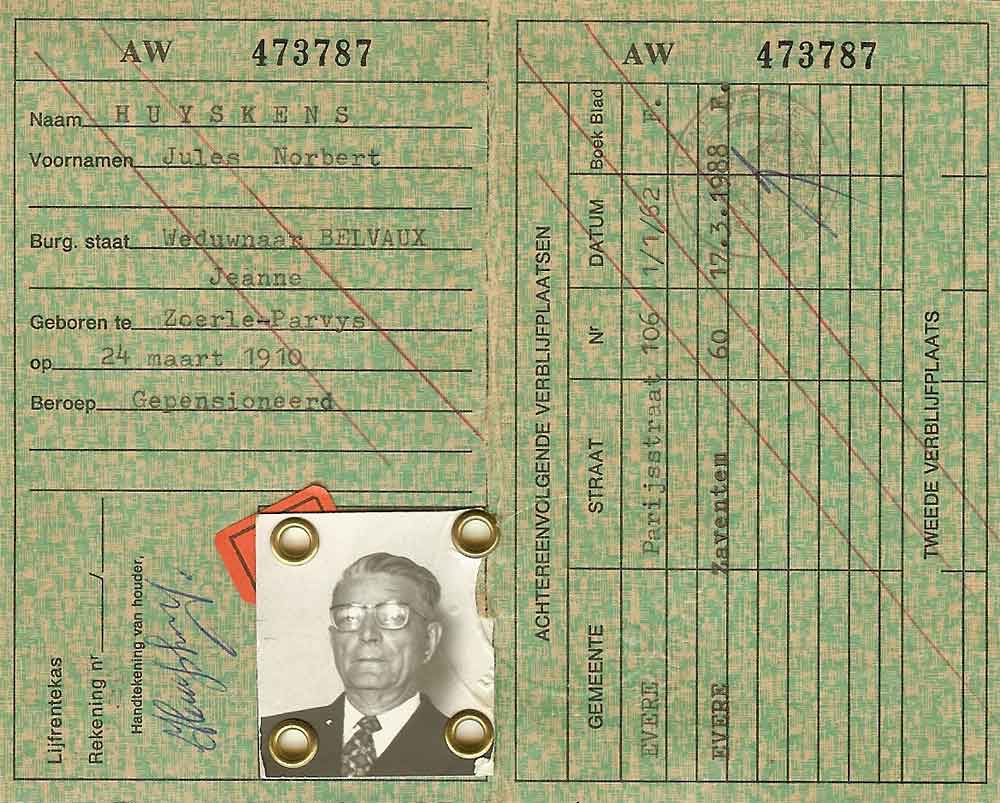 AW 473787
Naam HUYSKENS
Voornamen Jules Norbert
Burg. staat Weduwnaar BELVAUX
Jeanne
Geboren te Zoerle-Parvys
op 24 maart 1910
Beroep Gepensioneerd
Lijfrentekas
Rekening nr /
Handtekening van houder,
AW 473787
ACHTEREENVOLGENDE VERBLIJFPLAATSEN
GEMEENTE STRAAT Nr DATUM Boek Blad
EVERE Parijsstraat 106 1/1/62 F.
EVERE Zaventem 60 17.3.1988 R.
TWEEDE VERBLIJFPLAATS